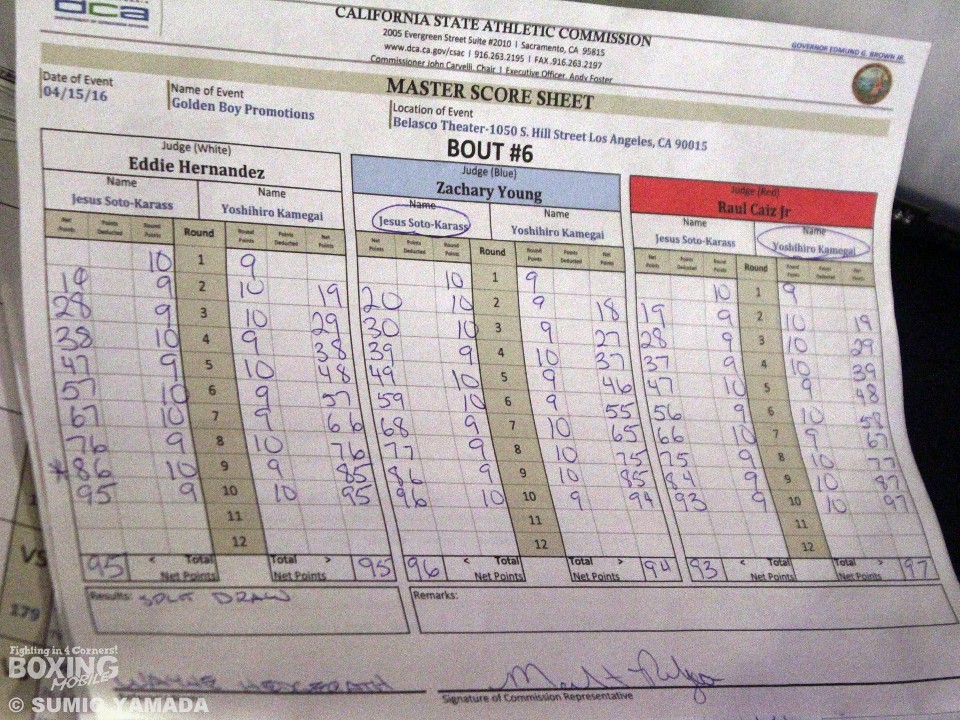 dca
CALIFORNIA STATE ATHLETIC COMMISSION
2005 Evergreen Street Suite #2010 | Sacramento, CA 95815
www.dca.ca.gov/csac | 916.263.2195 | FAX .916.263.2197
Commissioner John Carvelli, Chair | Executive Officer, Andy Foster
GOVERNOR EDMUND G. BROWN JR.
MASTER SCORE SHEET
Date of Event
04/15/16
Name of Event
Golden Boy Promotions
Location of Event
Belasco Theater-1050 S. Hill Street Los Angeles, CA 90015
BOUT #6
Judge (White) Judge (Blue) Judge (Red)
Eddie Hernandez Zachary Young Raul Caiz Jr
Name Name Name Name Name Name
Jesus Soto-Karass Yoshihiro Kamegai Jesus Soto-Karass Yoshihiro Kamegai Jesus Soto-Karass Yoshihiro Kamegai
Net Points Points Deducted Round Points Round Round Points Points Deducted Net Points Net Points Points Deducted Round Points Round Round Points Points Deducted Net Points Net Points Points Deducted Round Points Round Round Points Points Deducted Net Points
10 1 9 10 1 9 10 1 9
19 9 2 10 19 20 10 2 9 18 19 9 2 10 19
28 9 3 10 29 30 10 3 9 27 28 9 3 10 29
38 10 4 9 38 39 9 4 10 37 37 9 4 10 39
47 9 5 10 48 49 10 5 9 46 47 10 5 9 48
57 10 6 9 57 59 10 6 9 55 56 9 6 10 58
67 10 7 9 66 68 9 7 10 65 66 10 7 9 67
76 9 8 10 76 77 9 8 10 75 75 9 8 10 77
*86 10 9 9 85 86 9 9 10 85 84 9 9 10 87
95 9 10 10 95 96 10 10 9 94 93 9 10 10 97
11 11 11
12 12 12
95 < Total Net Points Total > Net Points 95 96 < Total Net Points Total > Net Points 94 93 < Total Net Points Total > Net Points 97
Results: SPLIT DRAW
Remarks:
WAYNE
Signature of Commission Representative
VS
179
Fighting in 4 Corners!
BOXING
MOBILE
© SUMIO YAMADA